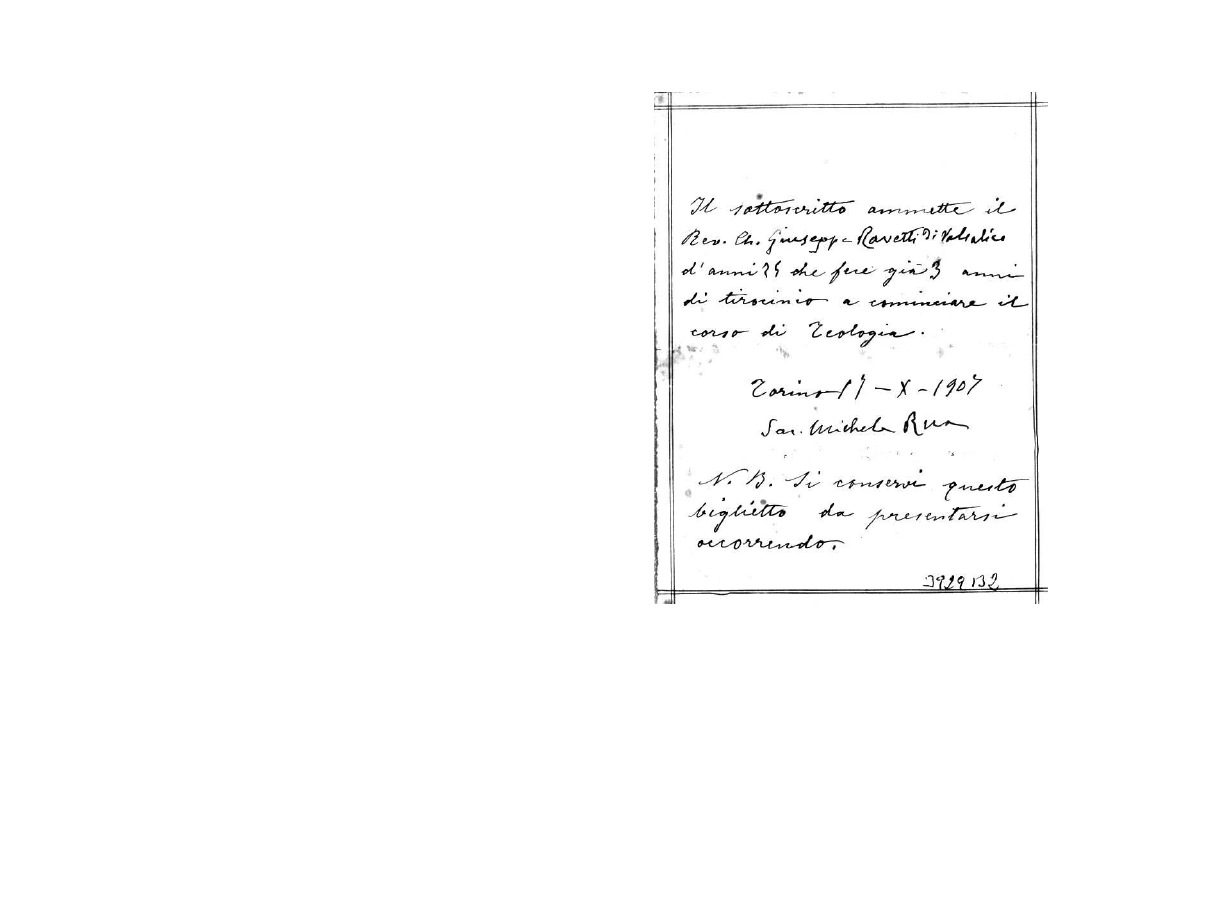 Il sottoscritto ammette il
Rev. Ch. Giuseppe Ravetti di Valsalice
d'anni che fece già 3 anni
di tirocinio a cominciare il
corso di Teologia.
Torino 17 - X - 1907
Sac. Michele Rua
N. B. Si conservi questo
biglietto da presentarsi
occorrendo.
3929 B2